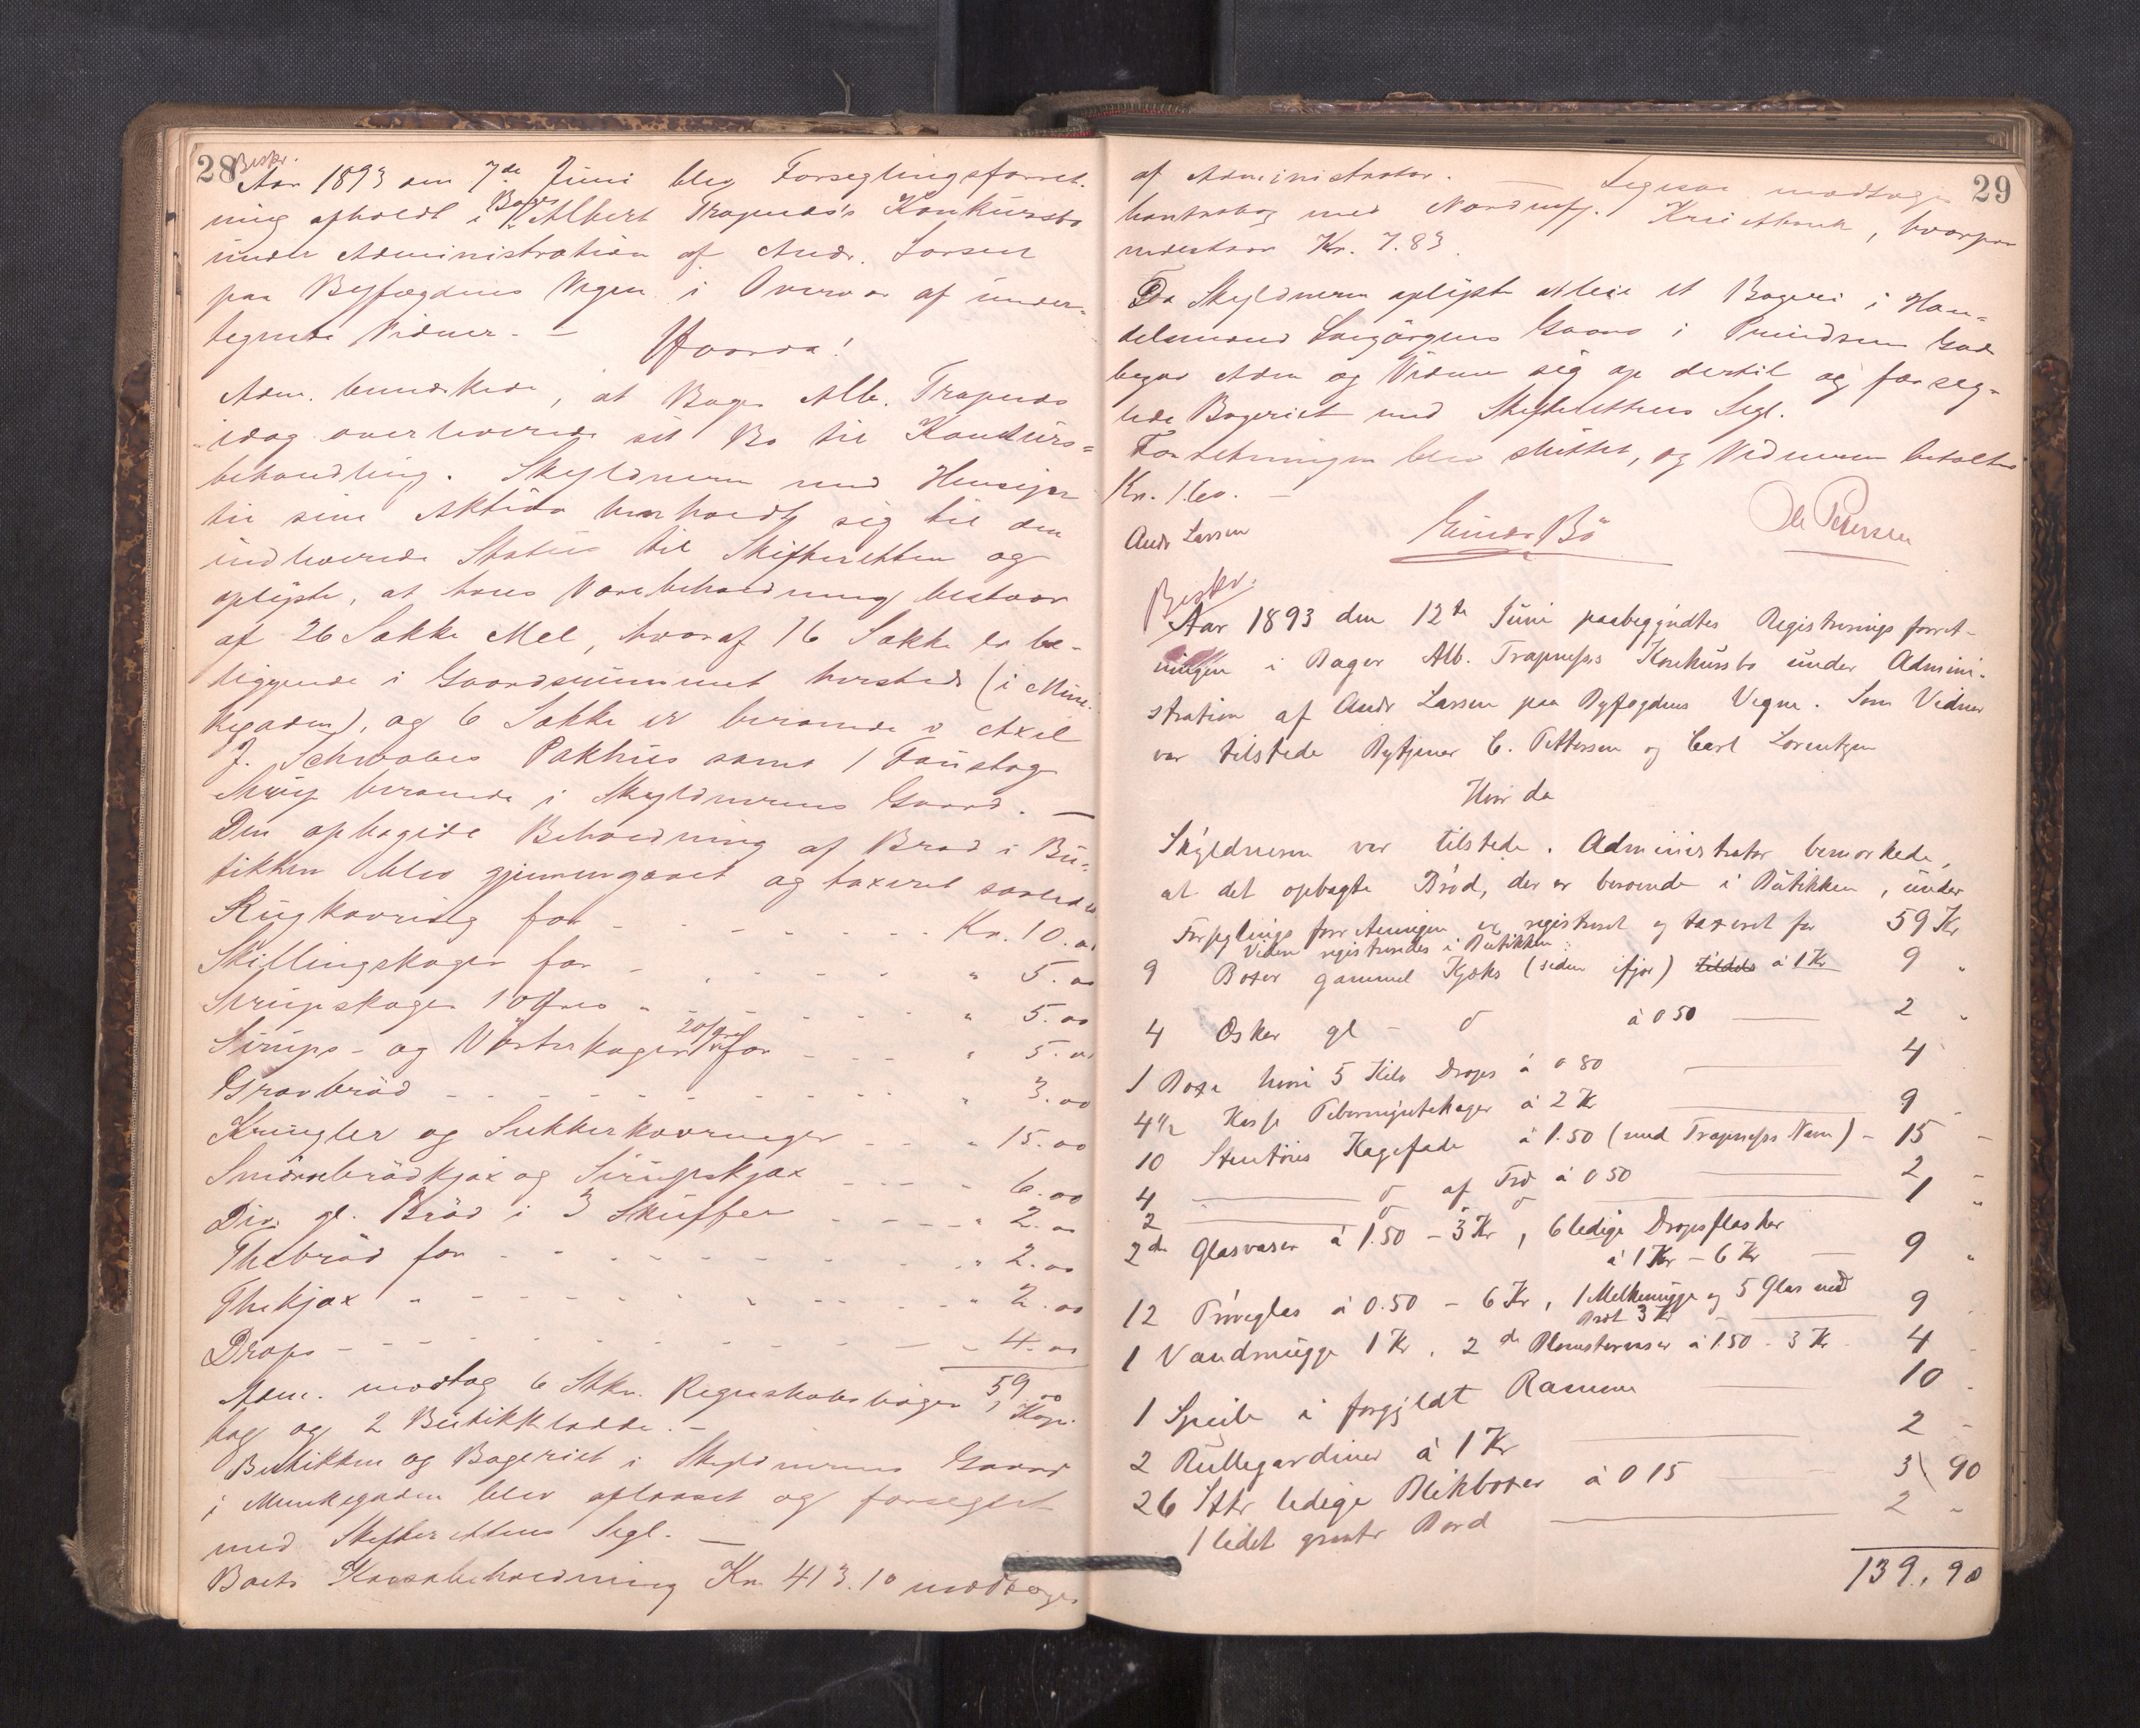 28
Beskr.
Aar 1893 den 7de Juni blev Forseglingsforret-
ning afholdt i Bager Albert Trapnes's Konkursbo
under Administration af Andr. Larsen
paa Byfogdens Vegne i Overvær af under-
tegnede Vidner. —
Hvorda!
Adm. bemærkede, at Bager Alb. Trapnes
idag overleverede sit Bo til Konkurs-
behandling. Skyldneren med Hensyn
til sine Aktiva henholdt sig til den
indleverede Status til Skifteretten og
oplyste, at hans Varebeholdning bestaar
af 26 Sække Mel, hvoraf 16 Sække er be-
liggende i Gaardsrummet hersteds (i Mun-
kegaden), og 6 Sække er beroende i Axel
J. Schwabes Pakhus samt 1 Fustage
beroende i Skyldnerens Gaard. —
Den opbagede Beholdning af Brød i Bu-
tikken blev gjennemgaaet og taxeret saaledes
Rugkavring for - - - - Kr. 10.00
Skillingskager for - - - " 5.00
Sirupskager 10 Øres " - - - " 5.00
Sirups- og Vørterkager 20/øre for - - - " 5.00
Grovbrød - - - - " 3.00
Kringler og Sukkerkavringer - - " 15.00
Smørrebrødkjæx og Sirupskjæx - - - 6.00
Div. gl. Brød i 3 Skuffer - - - " 2.00
Thebrød for - - - - " 2.00
Thekjæx " - - - - " 2.00
Drops - - - - 4.00
59.00
Adm. modtog 6 Stkr. Regnskabsbøger, 1 Kopi-
bog og 2 Butikkladde. —
Butikken og Bageriet i Skyldnerens Gaard
i Munkegaden blev aflaaset og forseglet
med Skifterettens Segl. —
Boets Kassabeholdning Kr. 413.10 modtoges
29
af Administrator. — Ligesaa modtoges
kontrabog med Nordmfj. Kreditbank, hvorpaa
indestaar Kr. 7.83.
Da Skyldneren oplyste at leie et Bageri i Han-
delsmand Gaard i
begav Adm og Vidner sig op dertil og forseg-
lede Bageriet med Skifterettens Segl.
Forretningen blev sluttet, og Vidnerne betaltes
Kr. 1.60. —
Andr Larsen Einar Bö Ole Petersen
Beskr.
Aar 1893 den 12te Juni paabegyndtes Registrerings forret-
ningen i Bager Alb. Trapness Konkursbo under Admini-
stration af Andr Larsen paa Byfogdens Vegne. Som Vidner
var tilstede Bytjener C. Pettersen og Carl Lorentzen
Hvor da
Skyldneren var tilstede. Administrator bemærkede,
at det opbagte Brød, der er beroende i Butikken, under
Forseglings forretningen er registreret og taxeret for 59 Kr
Videre registreredes i Butikken:
9 Boxer gammel Kjæks (siden ifjor) tildels à 1 Kr 9 "
4 Æsker gl - d à 0 50 — 2 "
1 Boxe hvori 5 Kilo Drops à 0 80 — 4
4 1/2 Kasse Pebermyntekager à 2 Kr — 9 -
10 Stentøies Kagefade à 1.50 (med Trapness Navn) - 15 -
4 — d af Træ à 0 50 — 2 -
2 — d d — 1 "
2 de Glasvaser à 1.50 - 3 Kr, 6 ledige Dropsflasker
à 1 Kr - 6 Kr — 9 "
12 Prøveglas à 0.50 - 6 Kr, 1 Melkemugge og 5 Glas med
3 Kr — 9 -
1 Vandmugge 1 Kr, 2 de Blomstervaser à 1.50 - 3 Kr. 4 -
1 Speile i forgyldt Ramme — 10 -
2 Rullegardiner à 1 Kr — 2 -
26 Stkr ledige Blikboxer à 0 15 — 3 90
1 lidet Bord — 2 -
139, 90